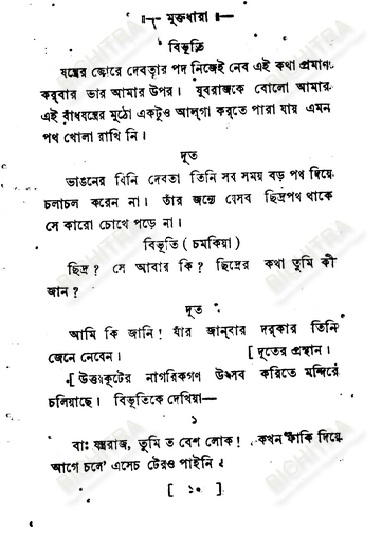 মুক্তধারা
বিভূতি
যন্ত্রের জোরে দেবতার পদ নিজেই নেব এই কথা প্রমাণ
কর্‌বার ভার আমার উপর। যুবরাজকে বোলো আমার
এই বাঁধযন্ত্রের মুঠো একটুও আল্‌গা কর্‌তে পারা যায় এমন
পথ খোলা রাখি নি।
দূত
ভাঙনের যিনি দেবতা তিনি সব সময় বড় পথ দিয়ে
চলাচল করেন না। তাঁর জন্যে যেসব ছিদ্রপথ থাকে
সে কারো চোখে পড়ে না।
বিভূতি ( চমকিয়া )
ছিদ্র? সে আবার কি? ছিদ্রের কথা তুমি কী
জান?
দূত
আমি কি জানি! যাঁর জান্‌বার দর্‌কার তিনি
জেনে নেবেন। [ দূতের প্রস্থান।
[ উত্তরকূটের নাগরিকগণ উৎসব করিতে মন্দিরে
চলিয়াছে। বিভূতিকে দেখিয়া—
১
বাঃ যন্ত্ররাজ, তুমি ত বেশ লোক! কখন ফাঁকি দিয়ে
আগে চলে' এসেচ টেরও পাইনি।
[ ১০ ]
BICHITRA